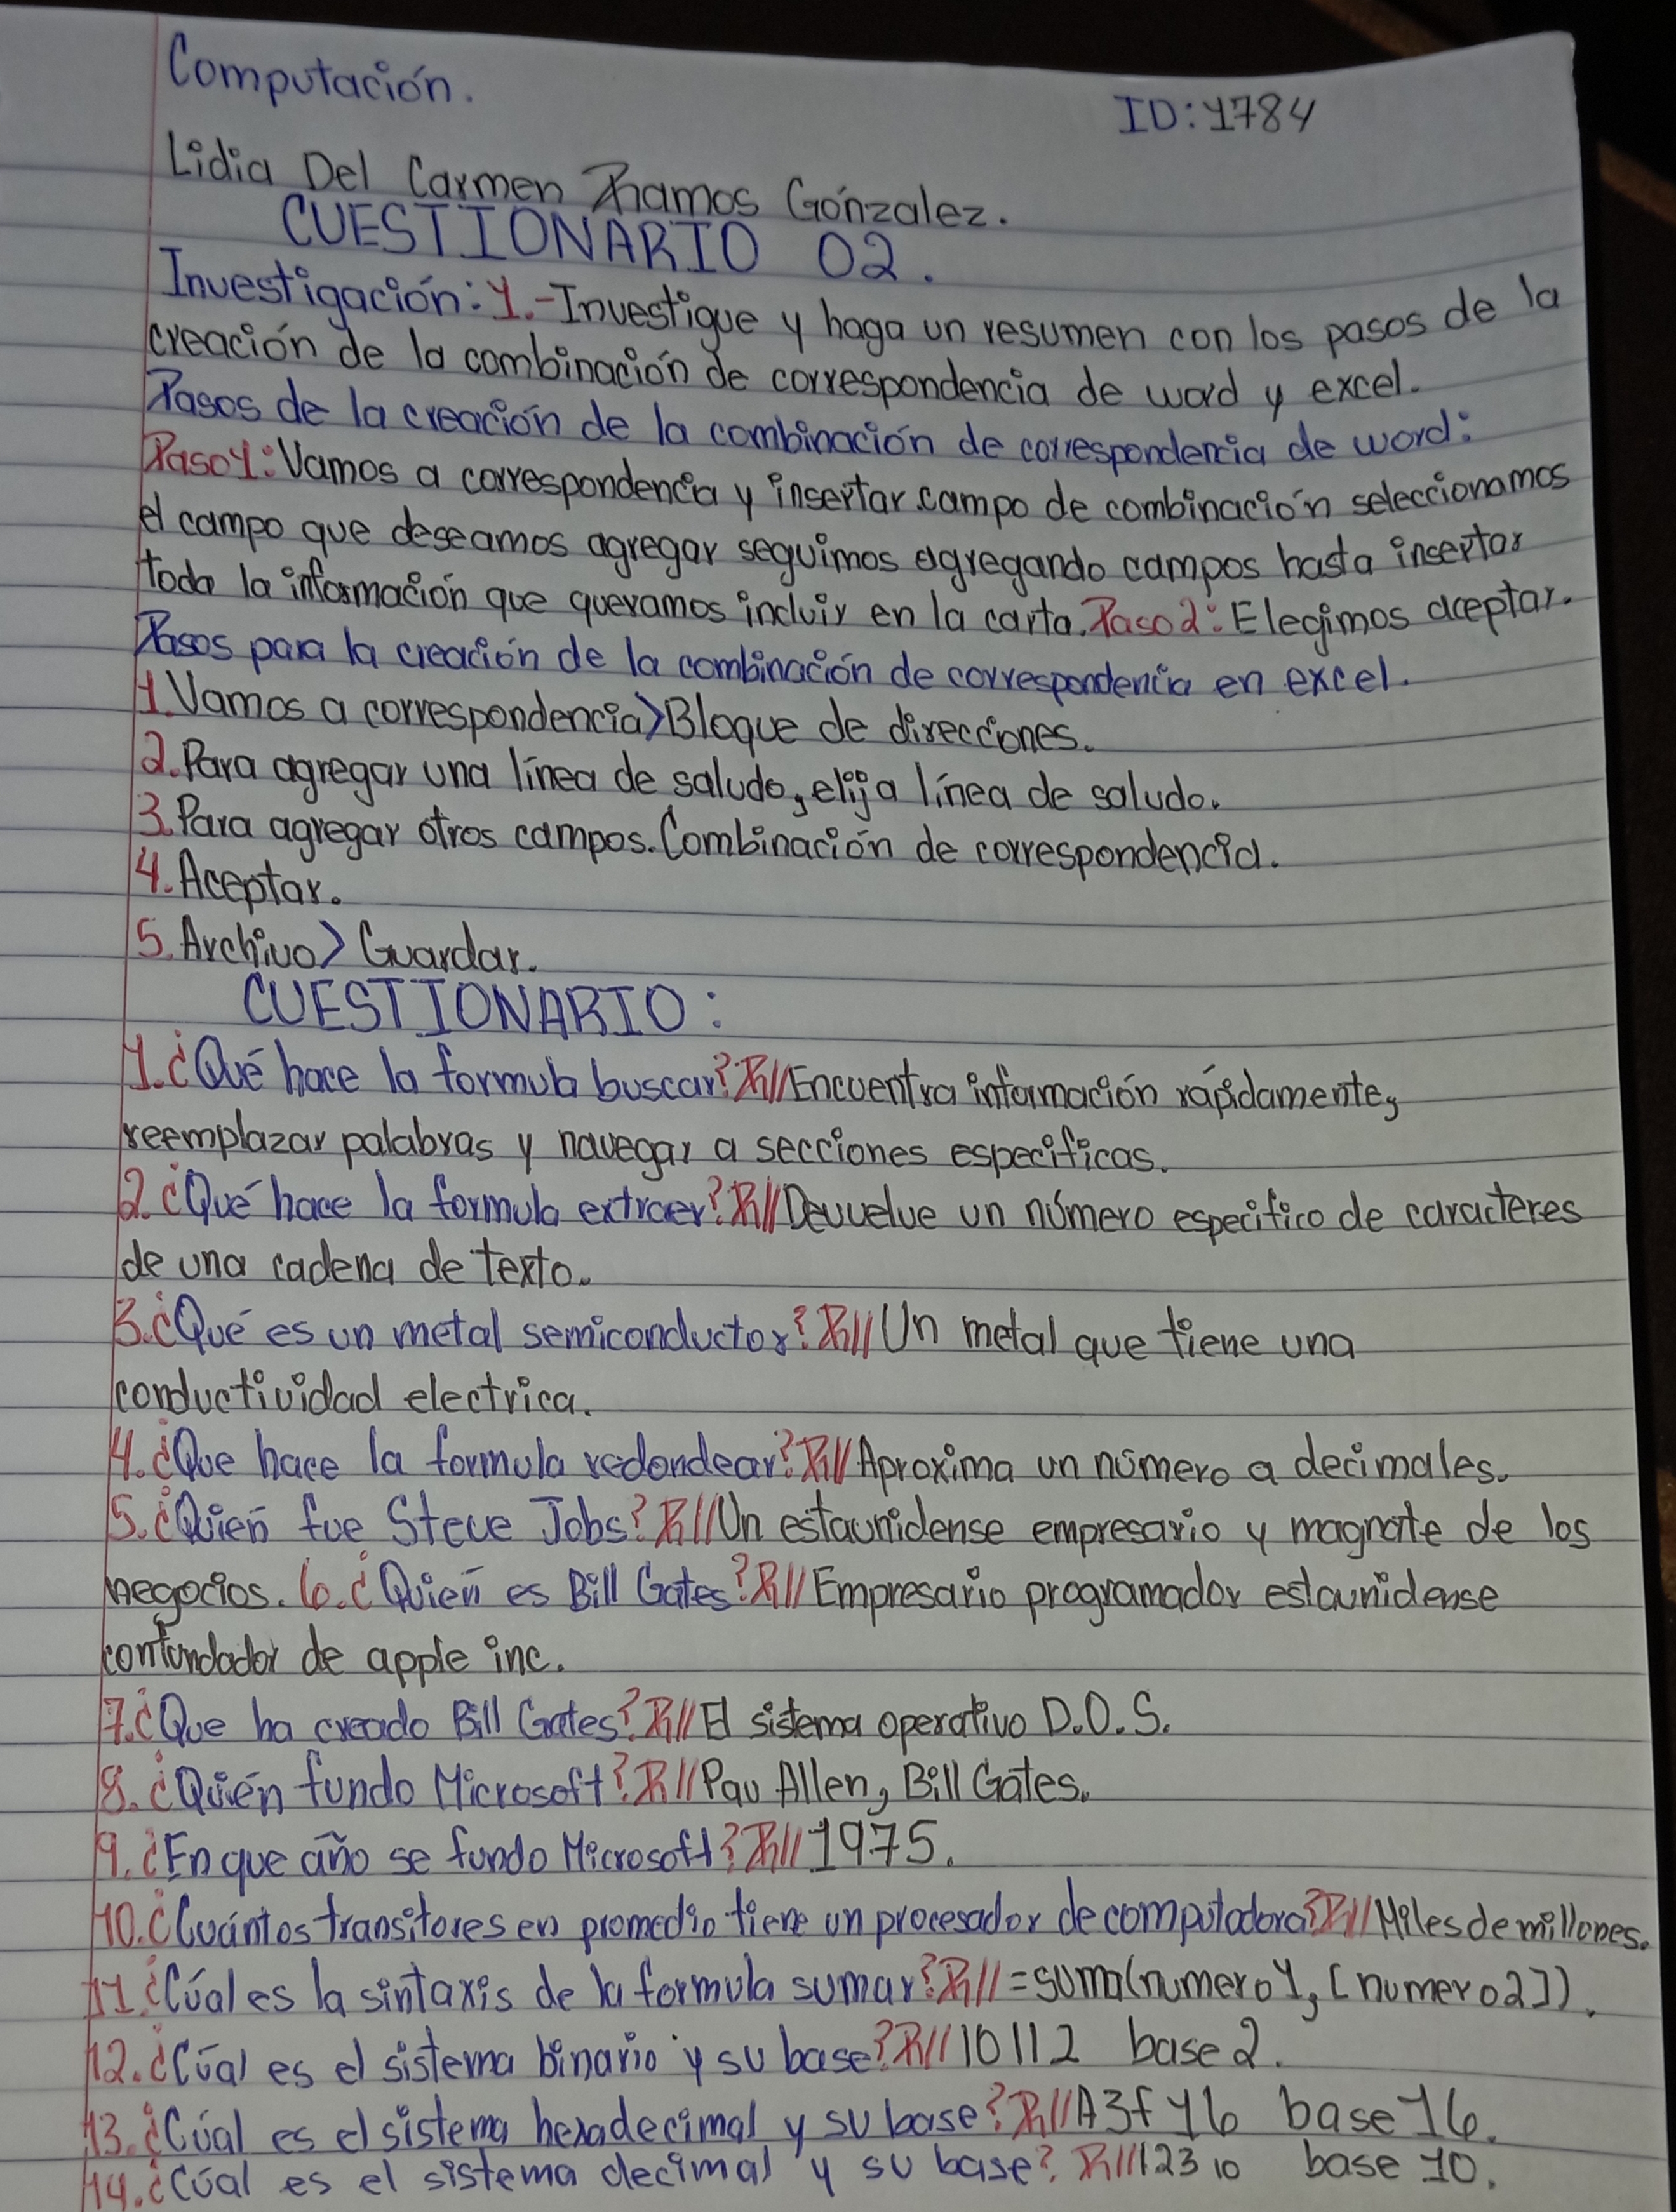 Computación.
ID: 1784
Lidia Del Carmen Ramos Gónzalez.
CUESTIONARIO 02.
Investigación: 1.-Investigue y haga un resumen con los pasos de la
creación de la combinación de correspondencia de word y excel.
Pasos de la creación de la combinación de correspondencia de word:
Paso1: Vamos a correspondencia y insertar campo de combinación seleccionamos
el campo que deseamos agregar seguimos agregando campos hasta insertar
toda la información que queramos incluir en la carta. Paso2: Elegimos aceptar.
Pasos para la creación de la combinación de correspondencia en excel.
1. Vamos a correspondencia>Bloque de direcciones.
2. Para agregar una línea de saludo, elija línea de saludo.
3. Para agregar otros campos. Combinación de correspondencia.
4. Aceptar.
5. Archivo> Guardar.
CUESTIONARIO:
1. ¿Qué hace la formula buscar? R// Encuentra información rápidamente,
reemplazar palabras y navegar a secciones especificas.
2. ¿Qué hace la formula extraer? R// Devuelve un número especifico de caracteres
de una cadena de texto.
3. ¿Qué es un metal semiconductor? R// Un metal que tiene una
conductividad electrica.
4. ¿Que hace la formula redondear? R// Aproxima un número a decimales.
5. ¿Quien fue Steve Jobs? R// Un estaunidense empresario y magnate de los
negocios. 6. ¿Quien es Bill Gates? R// Empresario programador estaunidense
confundador de apple inc.
7. ¿Que ha creado Bill Gates? R// El sistema operativo D.O.S.
8. ¿Quién fundo Microsoft? R// Pau Allen, Bill Gates.
9. ¿En que año se fundo Microsoft? R// 1975.
10. ¿Cuántos transitores en promedio tiene un procesador de computadora? R// Miles de millones.
11. ¿Cúal es la sintaxis de la formula sumar? R// =suma(numero1, [numero2]).
12. ¿Cúal es el sistema binario y su base? R// 10112 base 2.
13. ¿Cúal es el sistema hexadecimal y su base? R// A3f16 base 16.
14. ¿Cúal es el sistema decimal y su base? R// 123 10 base 10.